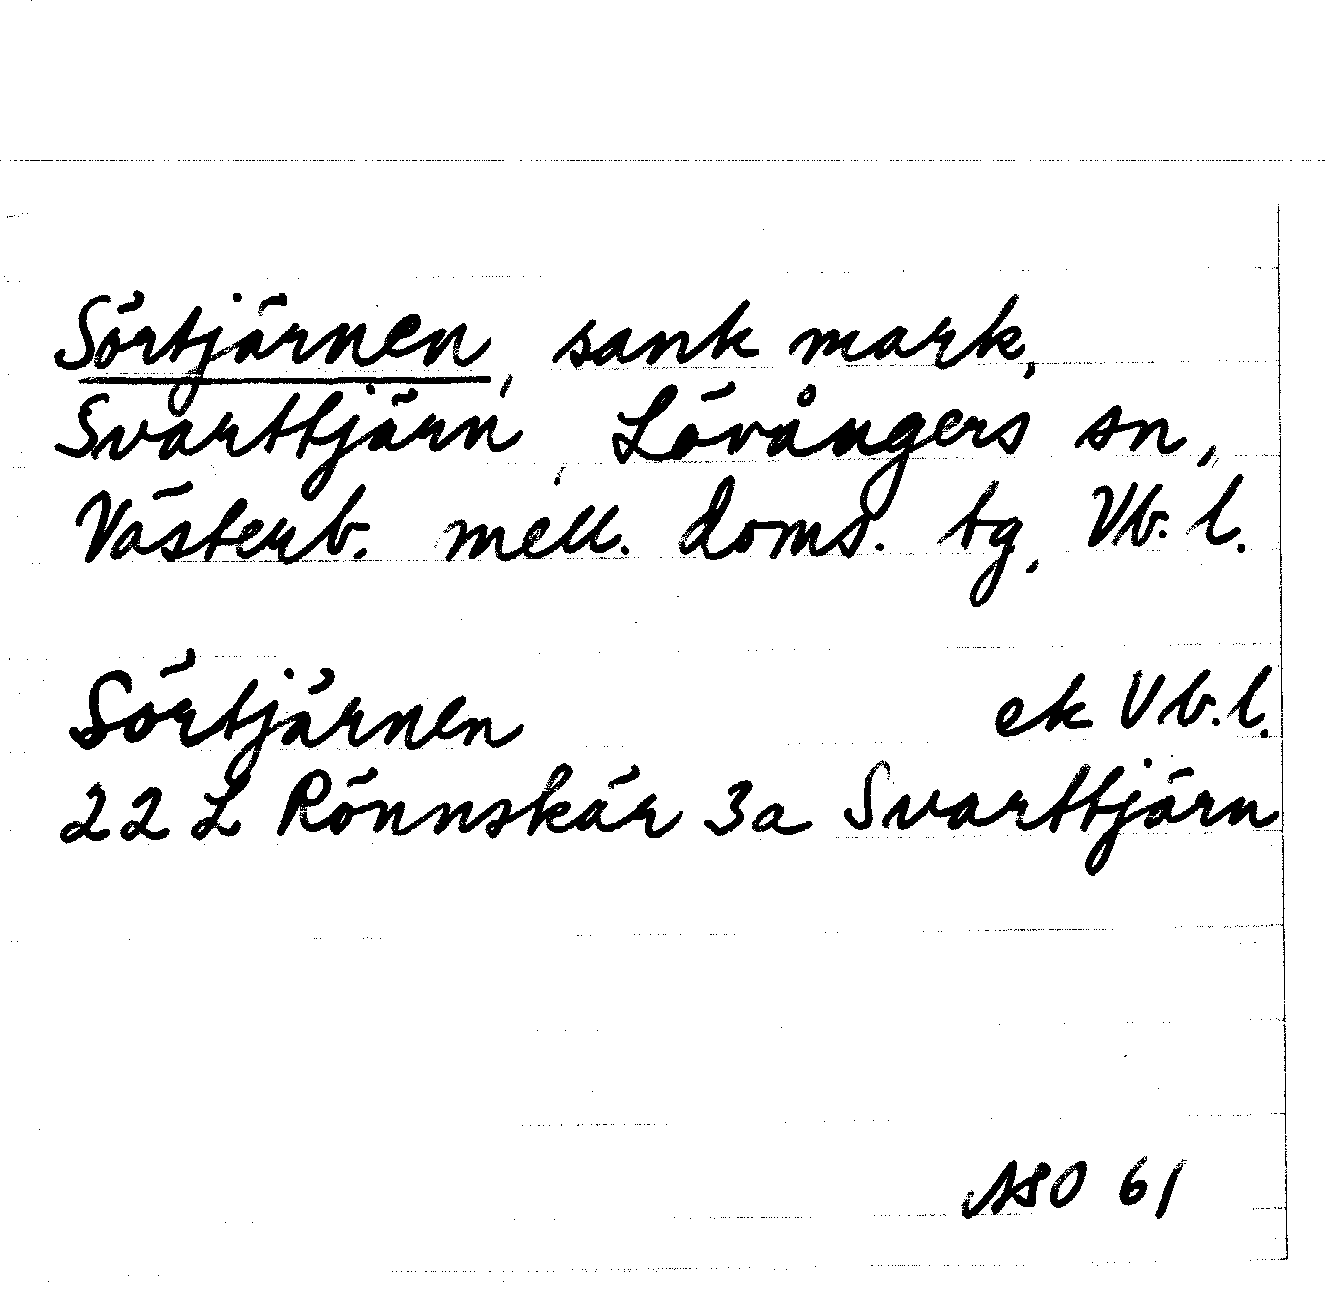 Sörtjärnen, sank mark,
Svarttjärn, Lövångers sn,
Västerb. mell. doms. tg, Vb. l.
Sörtjärnen ek Vb. l.
22 L Rönnskär 3a Svarttjärn
ASO 61